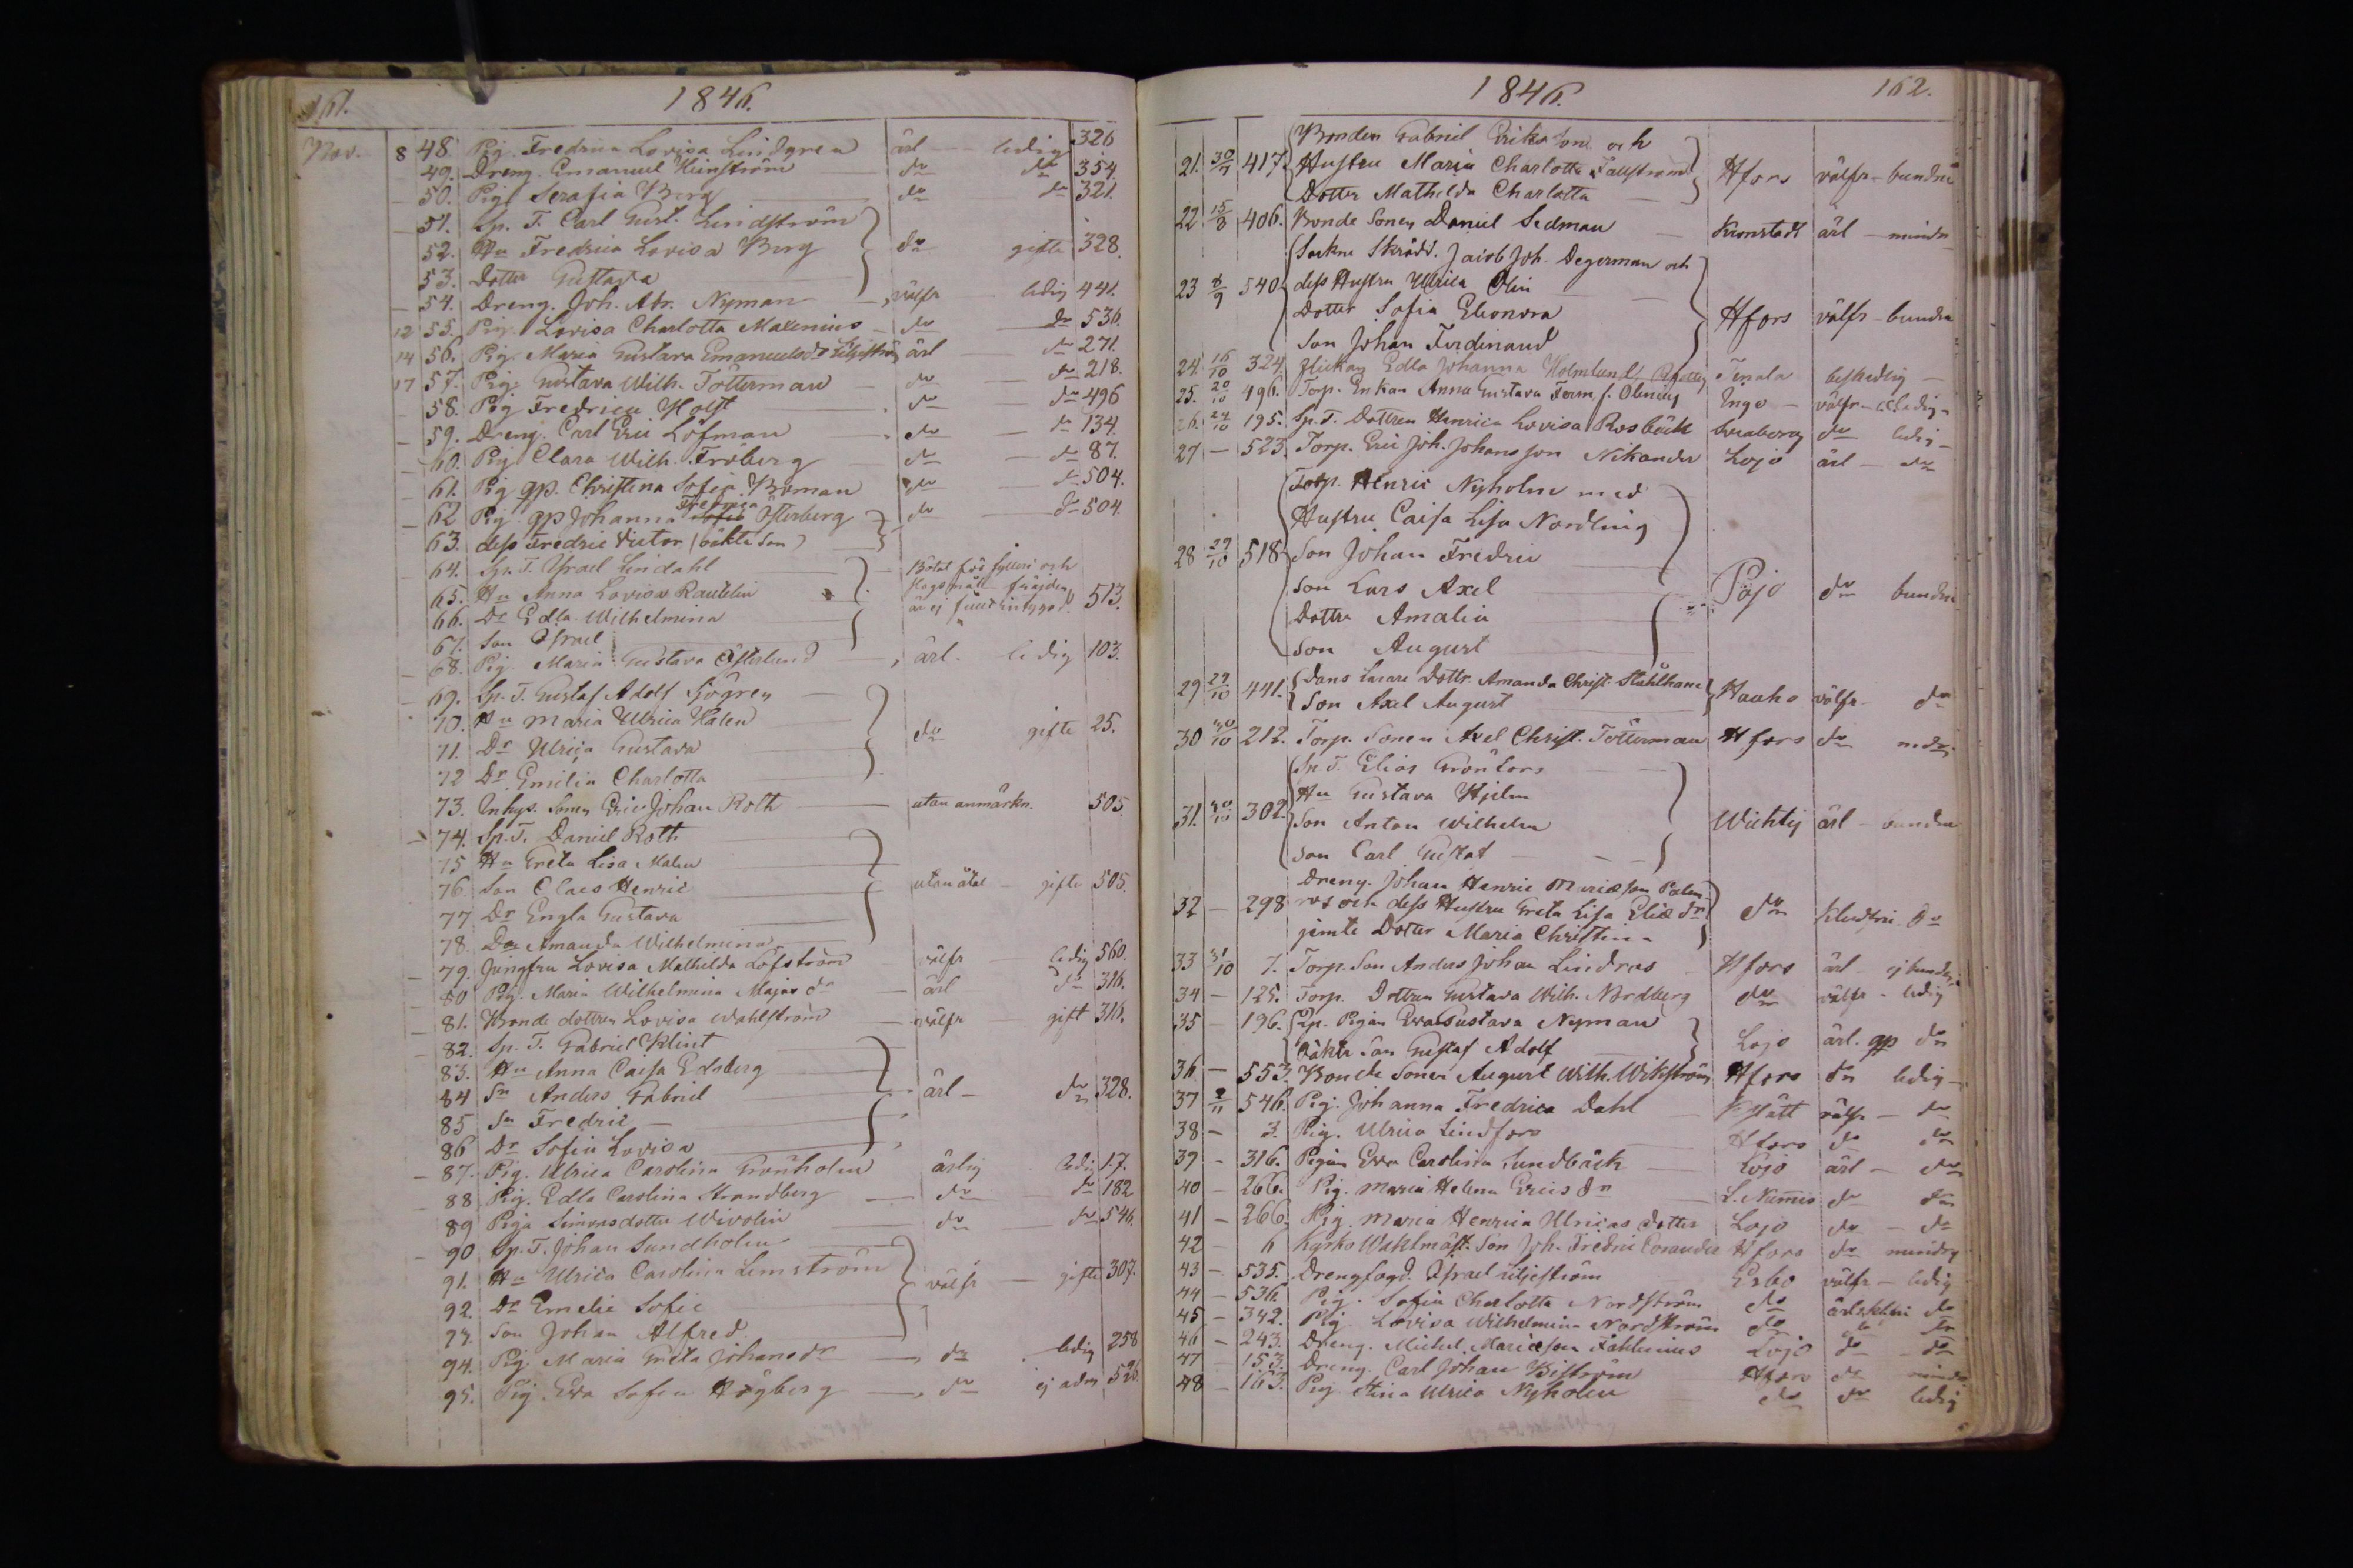 161. 1846.
Nov. 8 48. Pig. Fredrica Lovisa Lindgren ärl — ledig 326
49. Dreng. Emanuel Heinström do do 354.
50. Pig. Serafia Berg do do 321.
51. Sp. T. Carl Gust. Lindström
52. Hu Fredrica Lovisa Berg do gifte 328.
53. Dotter Gustava
54. Dreng. Joh. Abr. Nyman välfr ledig 441.
12 55. Pig. Lovisa Charlotta Malenius do do 536.
14 56. Pig. Maria Gustava Emanuelsdr Liljeström ärl do 271.
17 57. Pig. Gustava Wilh. Tötterman do do 218.
58. Pig Fredrica Holst do do 496
59. Dreng. Carl Eric Löfman do do 134.
60. Pig. Clara Wilh. Fröberg do do 87.
61. Pig gp. Christina Sofia Boman do do 504.
Fredrica
62 Pig. gp Johanna Sofia Österberg do do 504.
63. dess Fredric Victor (oäkta Son)
64. Sp. T. Israel Lindahl Bötat för fylleri och
65. Hu Anna Lovisa Rautelin slagsmål
66. Dr Edla Wilhelmina är ej 513.
67. Son Israel
68. Pig. Maria Gustava Österlund ärl. ledig 103.
69. Sp. T. Gustaf Adolf Sjögren
70. Hu Maria Ulrica Halen
71. Dr Ulrica Gustava do gifte 25.
72 Dr Emilia Charlotta
73. Inhys. Sonen Eric Johan Roth utan anmärkn. 505
74. Sp. T. Daniel Roth
75 Hu Greta Lisa Malm
76. Son Claes Henric utan åtal — gifte 505.
77 Dr Engla Gustava
78. Dr Amanda Wilhelmina
79. Jungfru Lovisa Mathilda Löfström välfr ledig 560.
80 Pig. Maria Wilhelmina Majas dr ärl do 316.
81. Bonde dottren Lovisa Wahlström välfr gift 316.
82. Sp. T. Gabriel Klint
83. Hu Anna Caisa Edsberg
84 Sn Anders Gabriel ärl — do 328.
85 Sn Fredric
86 Dr Sofia Lovisa
87. Pig. Ulrica Carolina Grönholm ärlig ledig 17.
88 Pig. Edla Carolina Strandberg do do 182
89 Piga Simonsdotter Wivolin do do 546.
90 Sp. T. Johan Sundholm
91. Hu Ulrica Carolina Lemström välfr — gifte 307.
92. Dr Emelie Sofie
93. Son Johan Alfred
94. Pig Maria Greta Johansdr do ledig 258
95. Pig. Eva Sofia Högberg do ej adm 526.
1846. 162.
Bonden Gabriel Eriksson och
21. 30/7 417. Hustru Maria Charlotta Fallström Hfors välfr — bundne
Dotter Mathilda Charlotta
22 15/8 406. Bonde Sonen Daniel Sedman Kronstadt ärl — mindr
Sockne Skrädd. Jacob Joh. Degerman och
23 8/9 540. dess Hustru Ulrica Olin
Dotter Sofia Eleonora Hfors välfr — bundna
Son Johan Ferdinand
24. 16/10 324. Flickan Edla Johanna Holmlund Tenala beskedlig —
25. 20/10 496. Torp. Enkan Anna Gustava Ferm f. Olenius Ingo — välfr — ledig
26. 24/10 195. Sp. T. Dottren Henrica Lovisa Rosbäck Sveaborg do ledig —
27 — 523. Torp. Eric Joh. Johansson Nikander Lojo ärl — do
Torp. Henric Nyholm med
Hustru Caisa Lisa Nordling
28 29/10 518. Son Johan Fredric
Son Lars Axel Pojo do bundne
Dotter Amalia
Son August
29 29/10 441. Dans Lärare Dottr. Amanda Christ. Stålhane Hauho välfr do
Son Axel August
30 30/10 212. Torp. Sonen Axel Christ. Tötterman Hfors do
Sp. T. Elias Grönfors
Hu Gustava Hjelm
31. 30/10 302. Son Anton Wilhelm Wichtij ärl — bundna
Son Carl Gustaf
Dreng. Johan Henric Mariæson Palm
32 — 298 ros och dess Hustru Greta Lisa Eliæ dr do Klandfri do
jemte Dotter Maria Christina
33 31/10 7. Torp. Son Anders Johan Lindroos Hfors ärl — ej bunden
34 — 125. Torp. Dottren Gustava Wilh. Nordberg do välfr — ledig
35 — 196. Gp. Pigan Eva Gustava Nyman
Oäkta Son Gustaf Adolf Lojo ärl. gp do
36 — 553. Bonde Sonen August Wilh. Wikström Hfors do ledig —
37 2/11 546. Pig. Johanna Fredrica Dahl Kslätt välfr — do
38 — 3. Pig. Ulrica Lindfors Hfors do do
39 — 316. Pigan Eva Carolina Sundbäck Lojo ärl — do
40 — 266. Pig. Maria Helena Erics dr L. Numis do do
41 — 266. Pig. Maria Henrica Ulricas dotter Lojo do — do
42 — 6 Kyrko Waktmäst. Son Joh. Fredric Corander Hfors do mindrig
43 — 535. Drengfogd. Israel Liljeström Esbo välfr — ledig
44 — 536. Pig. Sofia Charlotta Nordström do do
45 — 342. Pig Lovisa Wilhelmina Nordström do do do
46 — 243. Dreng. Michel Mariæson Fahlenius Lojo do — do
47 153. Dreng. Carl Johan Biström Hfors do
48 — 163. Pig Stina Ulrica Nyholm do do ledig